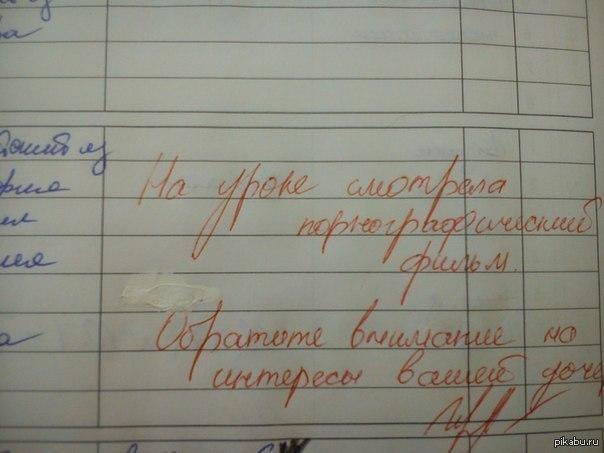 На уроке смотрела
порнографический
фильм.
Обратите внимание на
интересы вашей доче
pikabu.ru